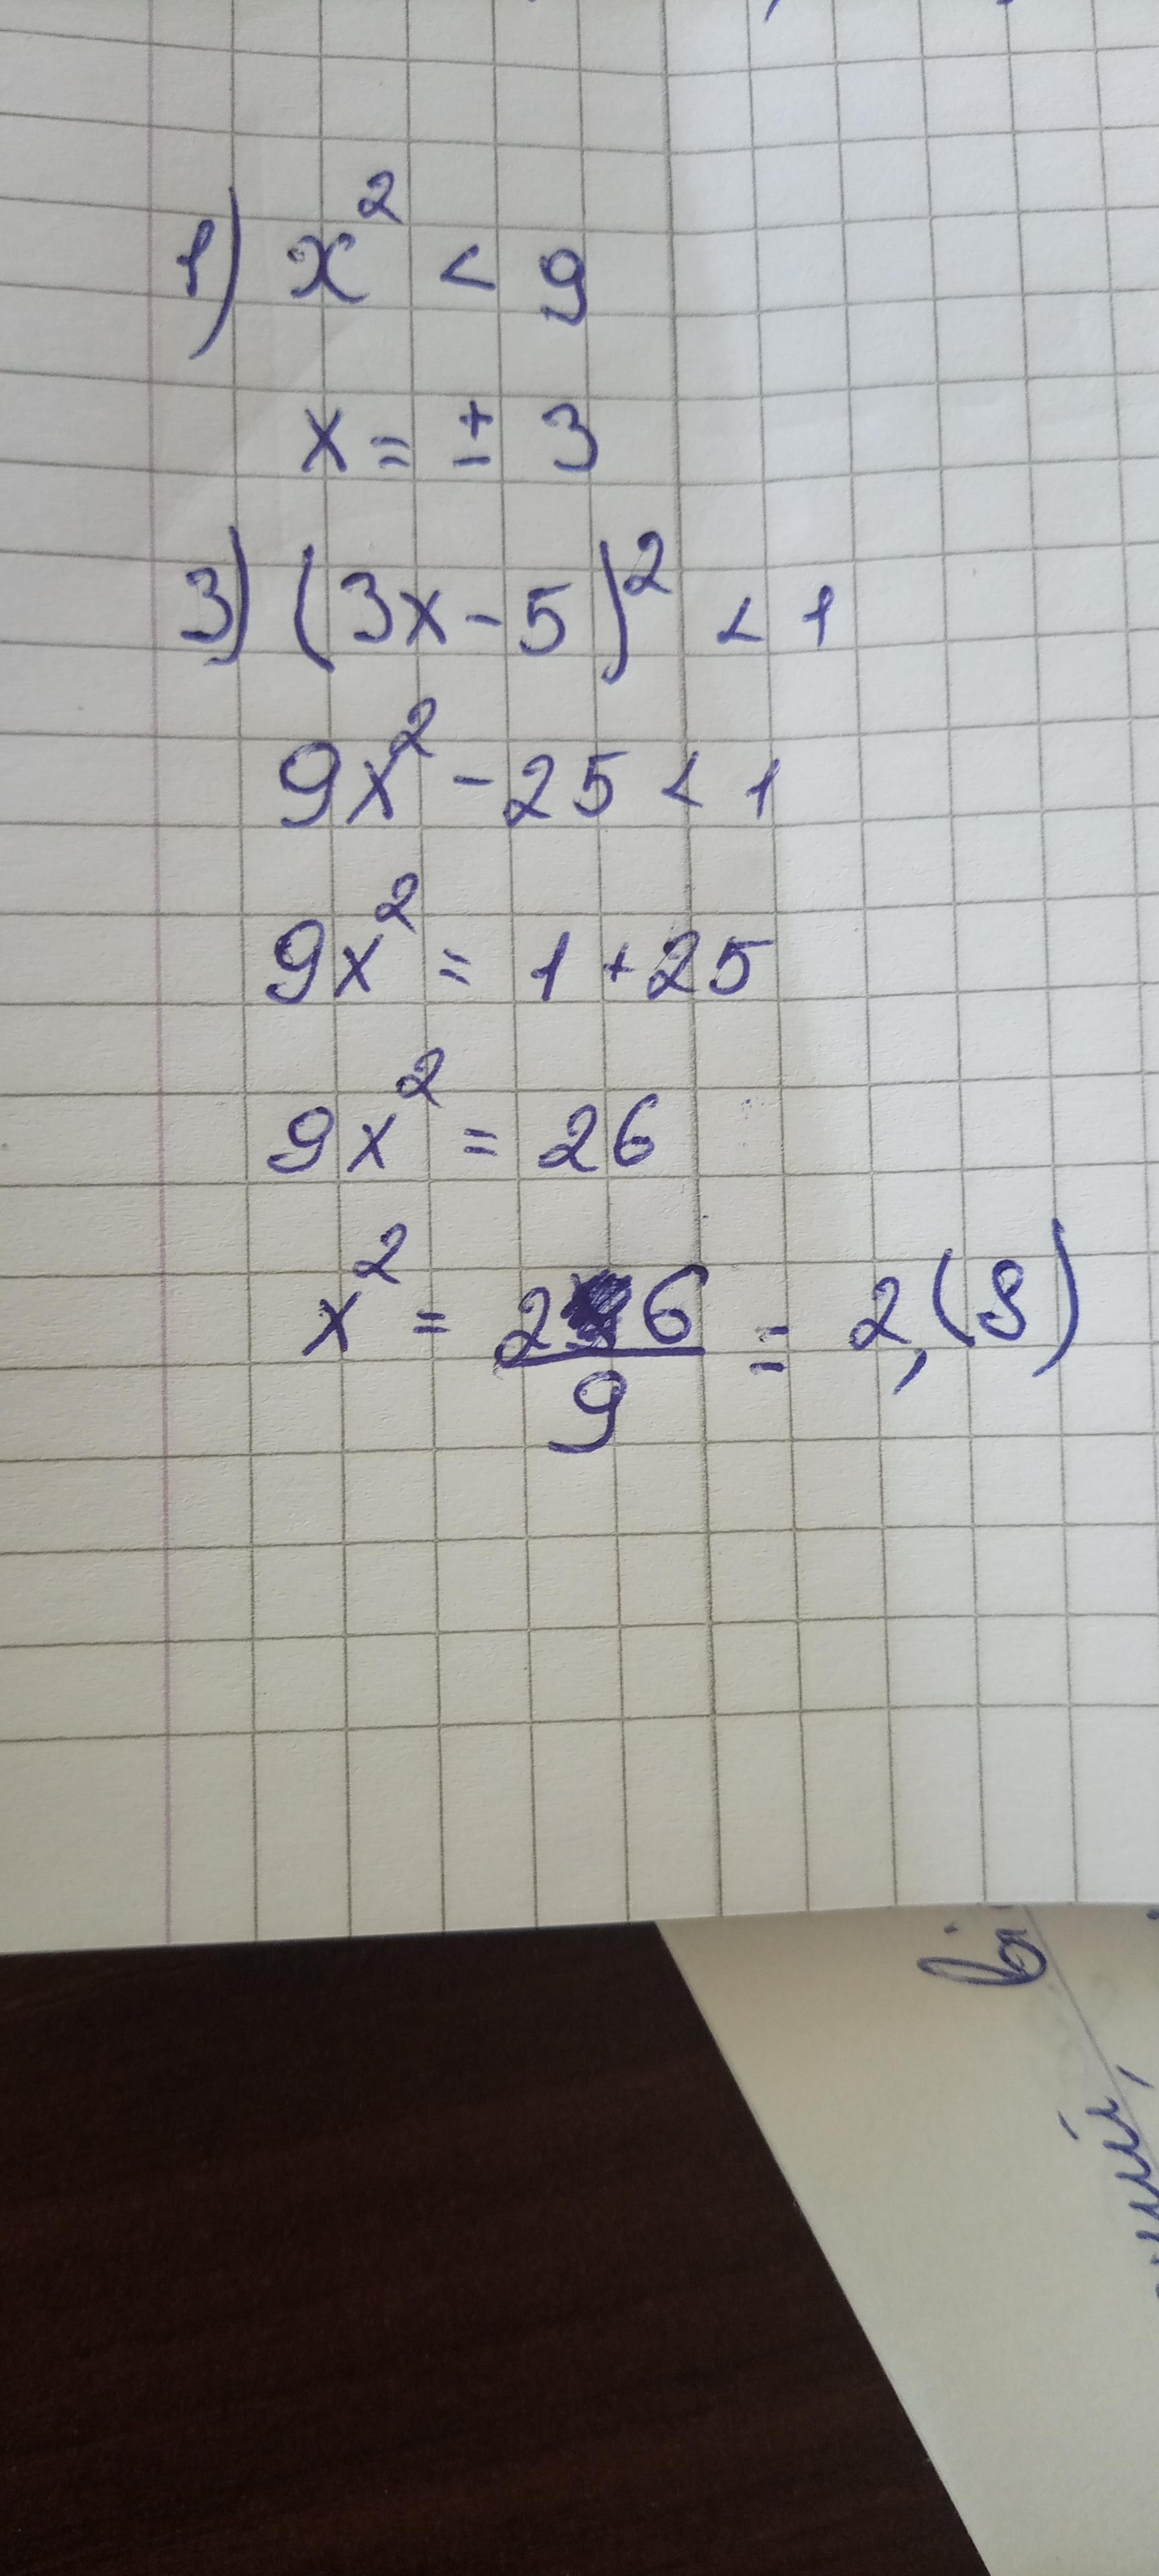 1) x² < 9
x = ± 3
3) (3x - 5)² < 1
9x² - 25 < 1
9x² = 1 + 25
9x² = 26
x² = 26/9 = 2,(8)